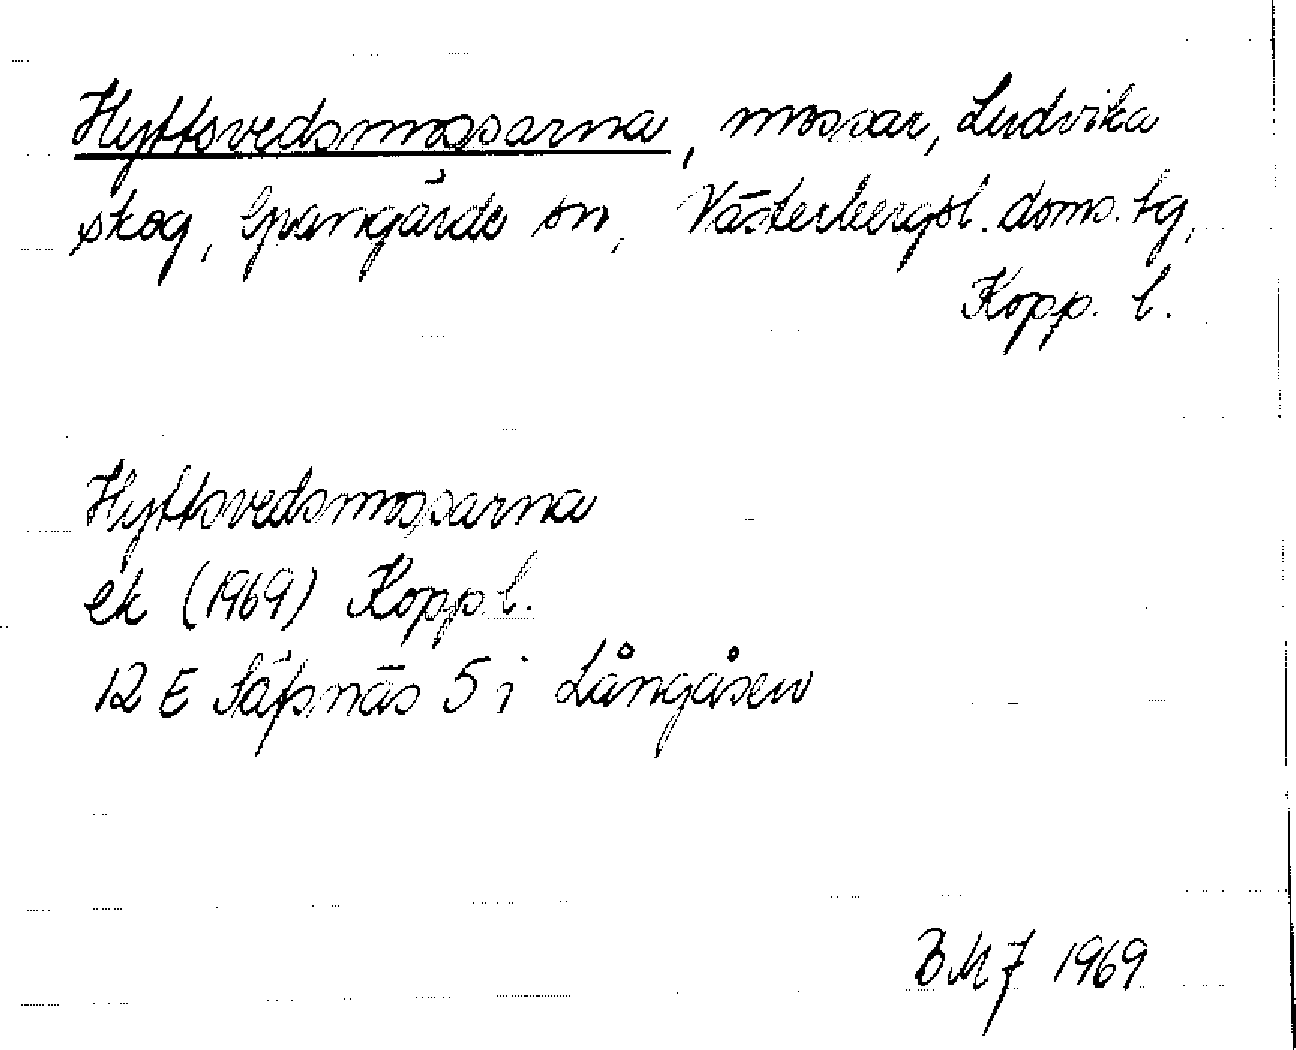 Hyttsvedsmossarna, mossar, Ludvika
skog, Grangärde sn, Västerbergsl. doms. tg,
Kopp. l.
Hyttsvedsmossarna
ek (1969) Kopp. l.
12 E Säfsnäs 5 i Långåsen
BMJ 1969